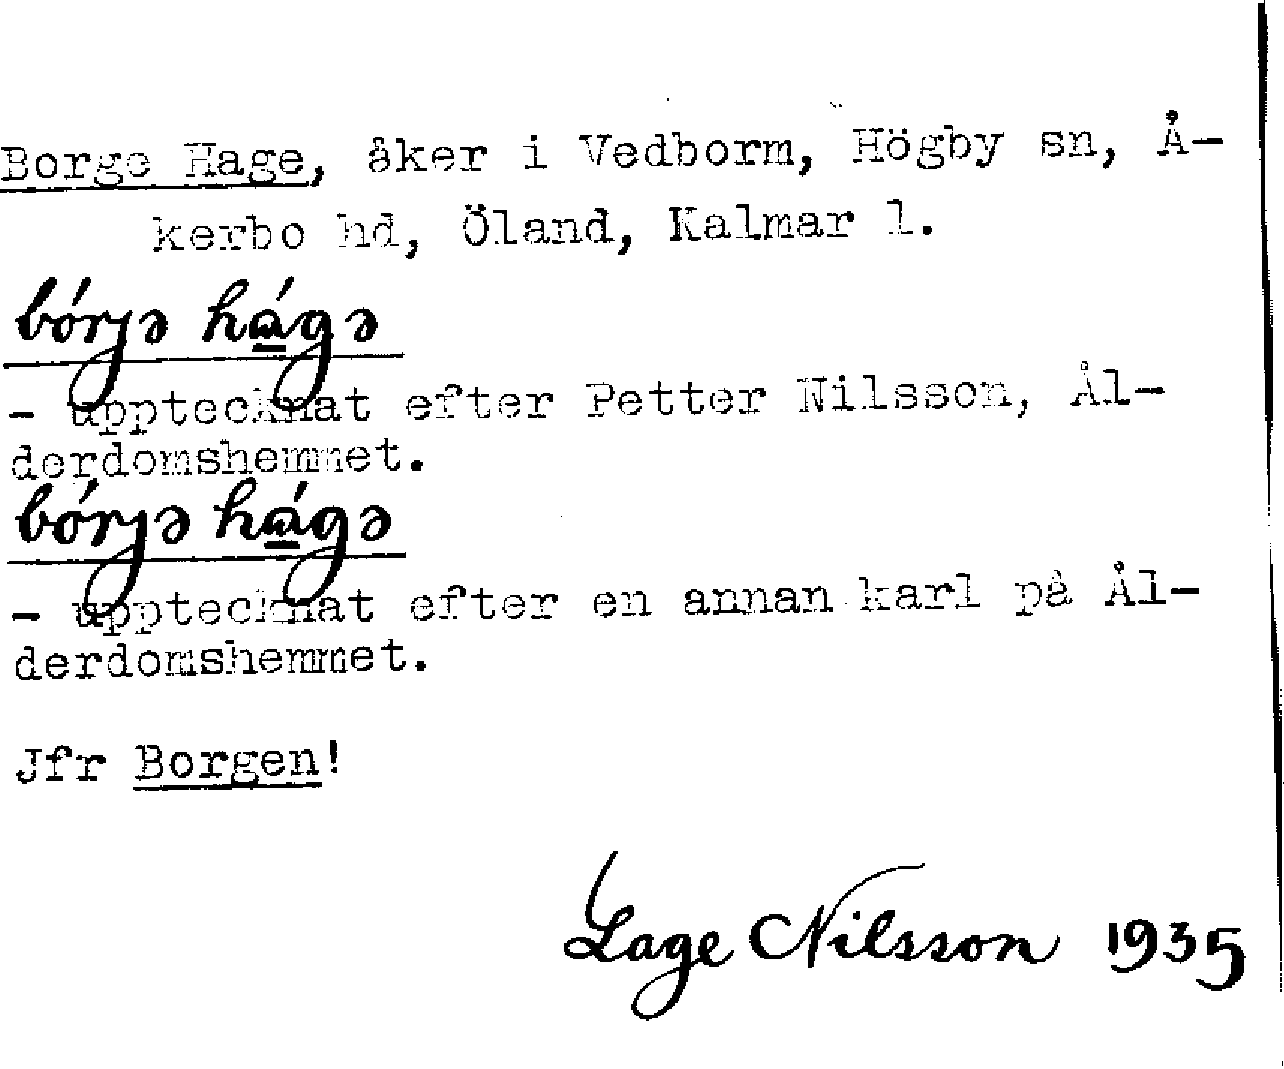 Borge Hage, åker i Vedborm, Högby sn, Å-
kerbo hd, Öland, Kalmar l.
bórjə hágə
- upptecknat efter Petter Nilsson, Ål-
derdomshemmet.
bórjə hágə
- upptecknat efter en annan karl på Ål-
derdomshemmet.
Jfr Borgen!
Lage Nilsson 1935